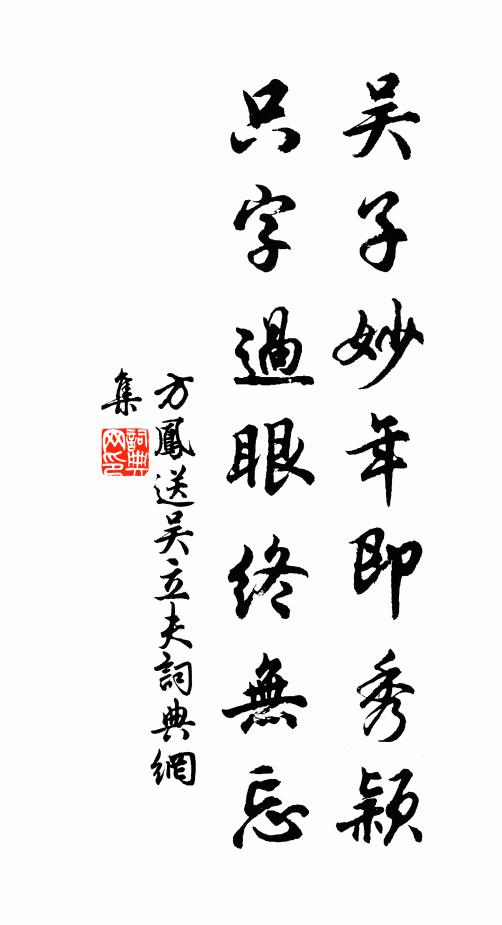 吴子妙年即秀穎
只字過眼終無忘
方鳳送吴立夫詞典網
集
詞典网印